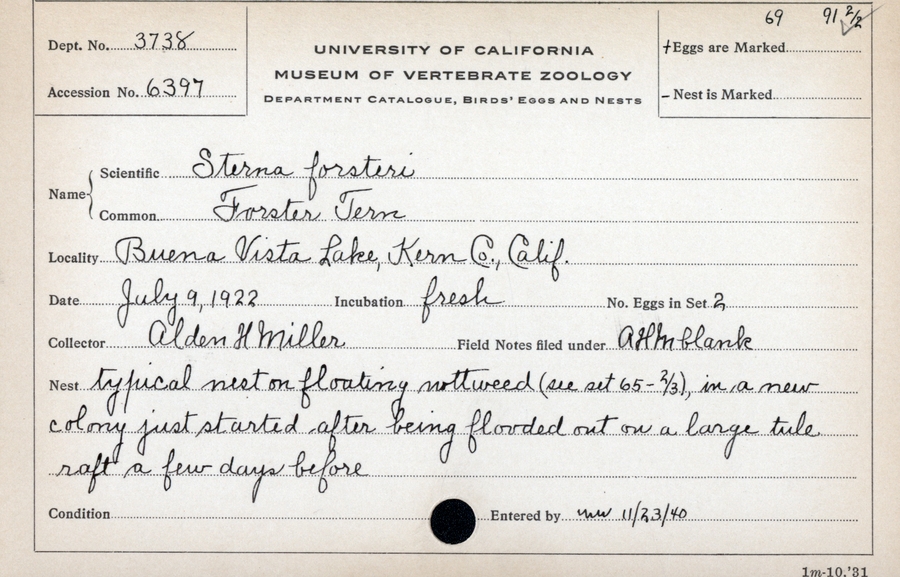 69 91 2/2
Dept. No. 3738
UNIVERSITY OF CALIFORNIA
+Eggs are Marked
MUSEUM OF VERTEBRATE ZOOLOGY
Accession No. 6397
DEPARTMENT CATALOGUE, BIRDS' EGGS AND NESTS
-Nest is Marked
Name Scientific Sterna forsteri
Common Forster Tern
Locality Buena Vista Lake, Kern Co., Calif.
Date July 9, 1922 Incubation fresh No. Eggs in Set 2
Collector Alden H Miller Field Notes filed under AHM blank
Nest typical nest on floating nottweed (see set 65-2/3), in a new
colony just started after being flooded out on a large tule
raft a few days before
Condition Entered by mw 11/23/40
1m-10,'31